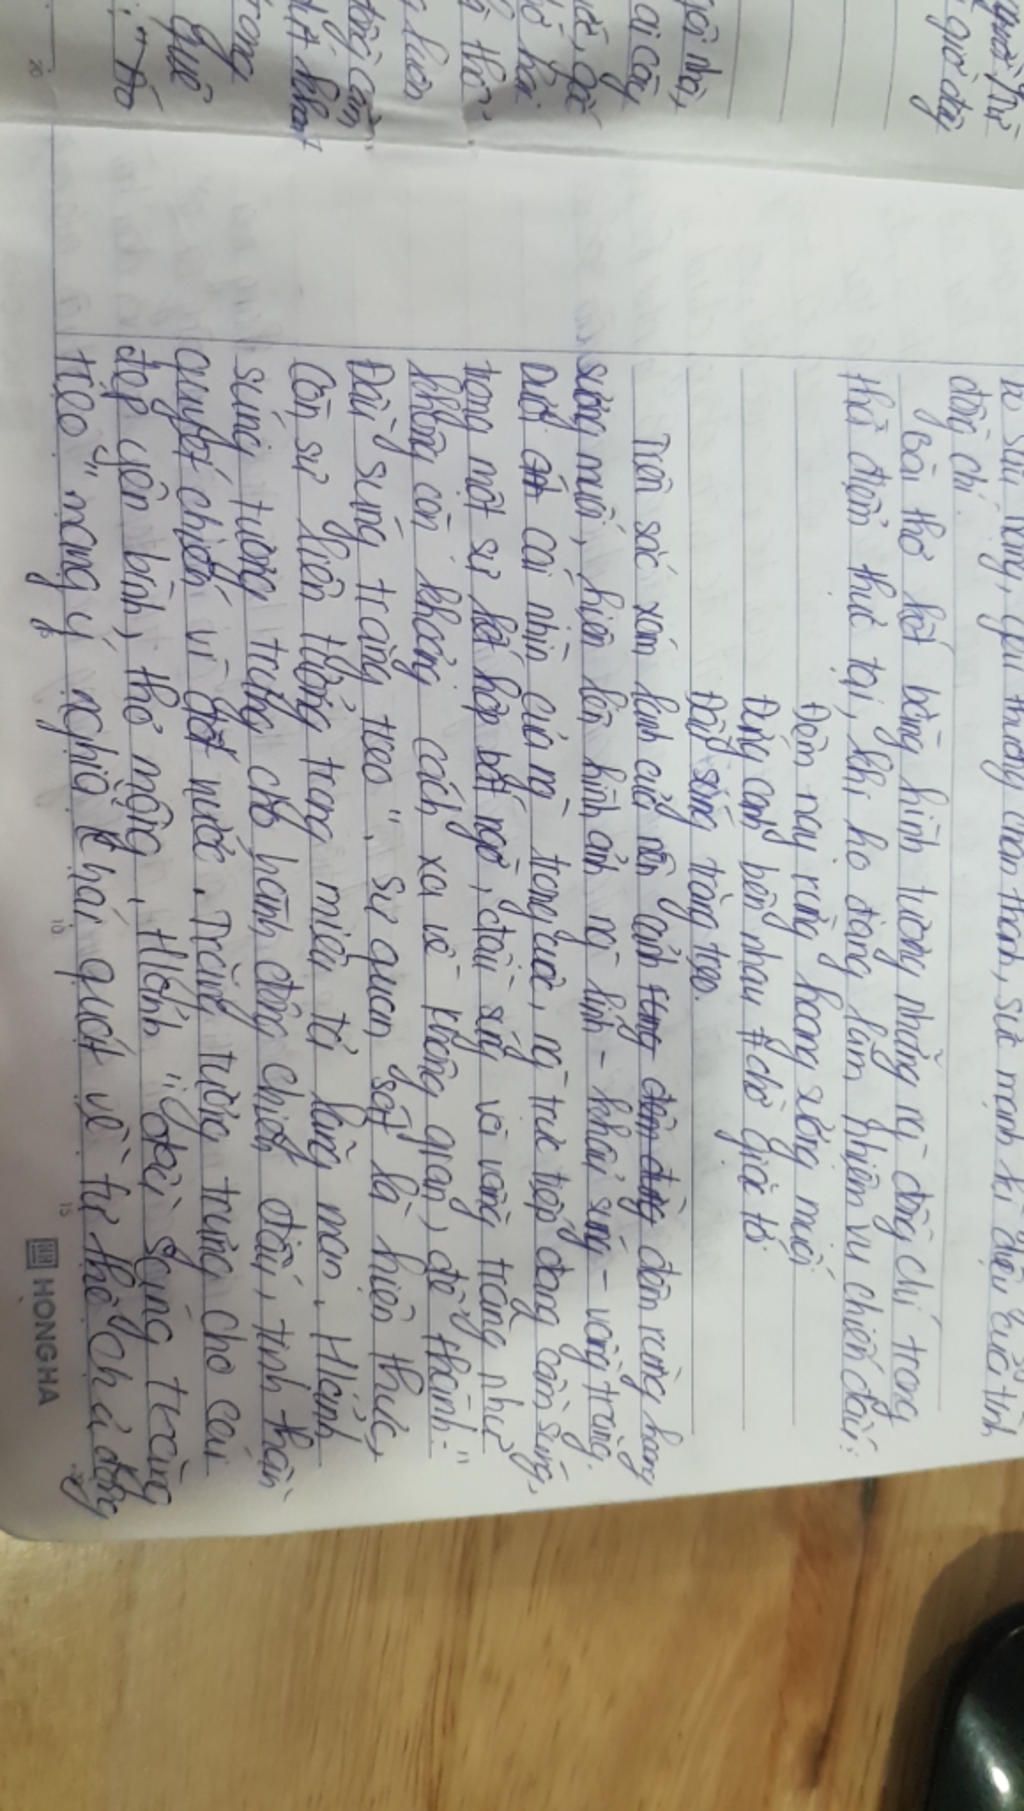 yêu thương chân thành, sức mạnh kì diệu của tình
đồng chí.
Bài thơ kết bằng hình tượng những ng đồng chí trong
thời điểm thực tại, khi họ đang làm nhiệm vụ chiến đấu:
Đêm nay rừng hoang sương muối
Đứng cạnh bên nhau chờ giặc tới
Đầu súng trăng treo.
Trên sắc xám lạnh của nền cảnh đêm rừng hoang
sương muối, hiện lên hình ảnh ng lính - khẩu súng - vầng trăng.
Dưới cái nhìn của ng trong cuộc, ng trực tiếp đang cầm súng,
trong một sự kết hợp bất ngờ, đầu súng và vầng trăng như
không còn khoảng cách xa về không gian, để thành: "
Đầu súng trăng treo". Sự quan sát là hiện thực,
còn sự liên tưởng trong miêu tả là lãng mạn. H/ảnh
súng tượng trưng cho hành động chiến đấu, tinh thần
quyết chiến vì đất nước. Trăng tượng trưng cho cái
đẹp yên bình, thơ mộng. H/ảnh "đầu súng trăng
treo" mang ý nghĩa khái quát về tư thế chủ động
HONG HA
10
15
20
giờ đây
gội nhau
trong
quê